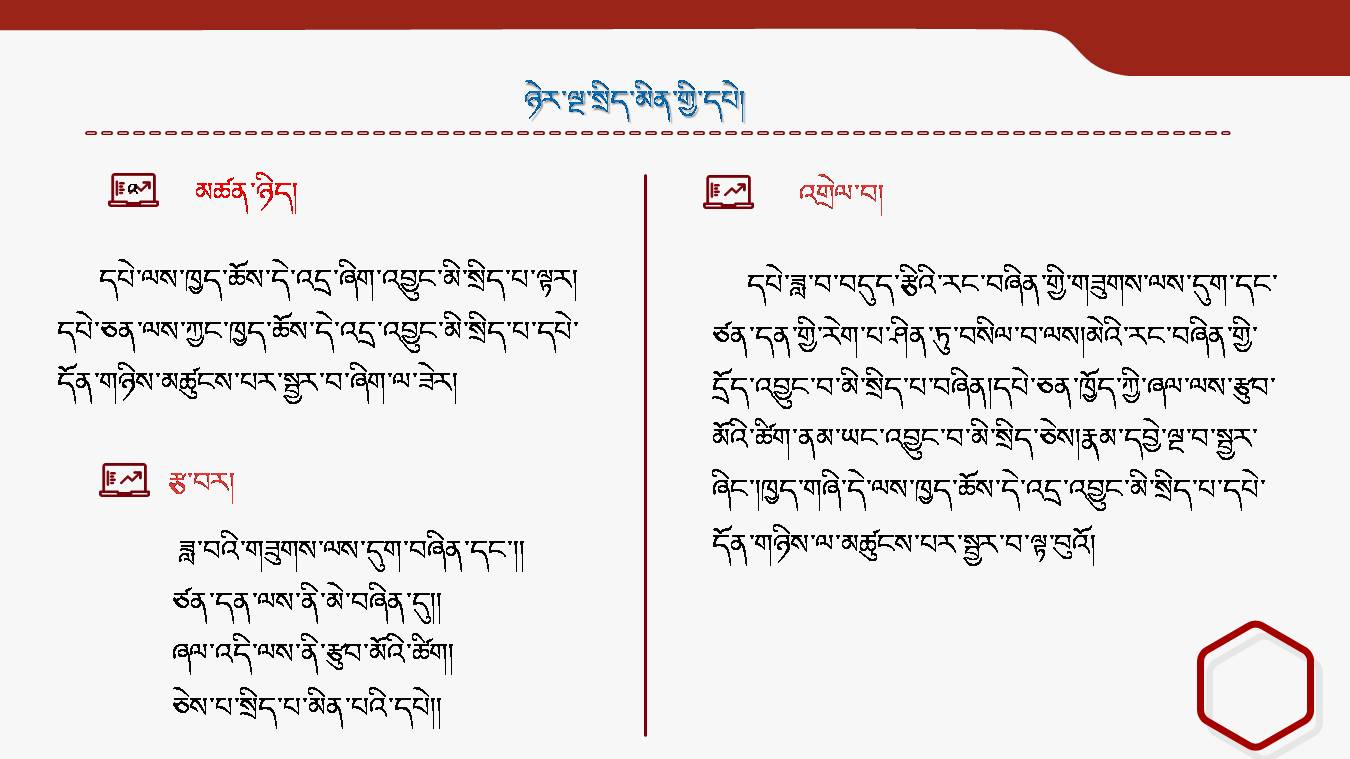 ཉེར་ལྔ་སྲིད་མིན་གྱི་དཔེ།
མཚན་ཉིད།
དཔེ་ལས་ཁྱད་ཆོས་དེ་འདྲ་ཞིག་འབྱུང་མི་སྲིད་པ་ལྟར།
དཔེ་ཅན་ལས་ཀྱང་ཁྱད་ཆོས་དེ་འདྲ་འབྱུང་མི་སྲིད་པ་དཔེ་
དོན་གཉིས་མཚུངས་པར་སྦྱར་བ་ཞིག་ལ་ཟེར།
རྩ་བར།
ཟླ་བའི་གཟུགས་ལས་དུག་བཞིན་དང་།།
ཙན་དན་ལས་ནི་མེ་བཞིན་དུ།།
ཞལ་འདི་ལས་ནི་རྩུབ་མོའི་ཚིག།
ཅེས་པ་སྲིད་པ་མིན་པའི་དཔེ།།
འགྲེལ་བ།
དཔེ་ཟླ་བ་བདུད་རྩིའི་རང་བཞིན་གྱི་གཟུགས་ལས་དུག་དང་
ཙན་དན་གྱི་རེག་པ་ཤིན་ཏུ་བསིལ་བ་ལས།མེའི་རང་བཞིན་གྱི་
དྲོད་འབྱུང་བ་མི་སྲིད་པ་བཞིན།དཔེ་ཅན་ཁྱོད་ཀྱི་ཞལ་ལས་རྩུབ་
མོའི་ཚིག་ནམ་ཡང་འབྱུང་བ་མི་སྲིད་ཅེས།རྣམ་དབྱེ་ལྔ་བ་སྦྱར་
ཞིང་།ཁྱད་གཞི་དེ་ལས་ཁྱད་ཆོས་དེ་འདྲ་འབྱུང་མི་སྲིད་པ་དཔེ་
དོན་གཉིས་ལ་མཚུངས་པར་སྦྱར་བ་ལྟ་བུའོ།